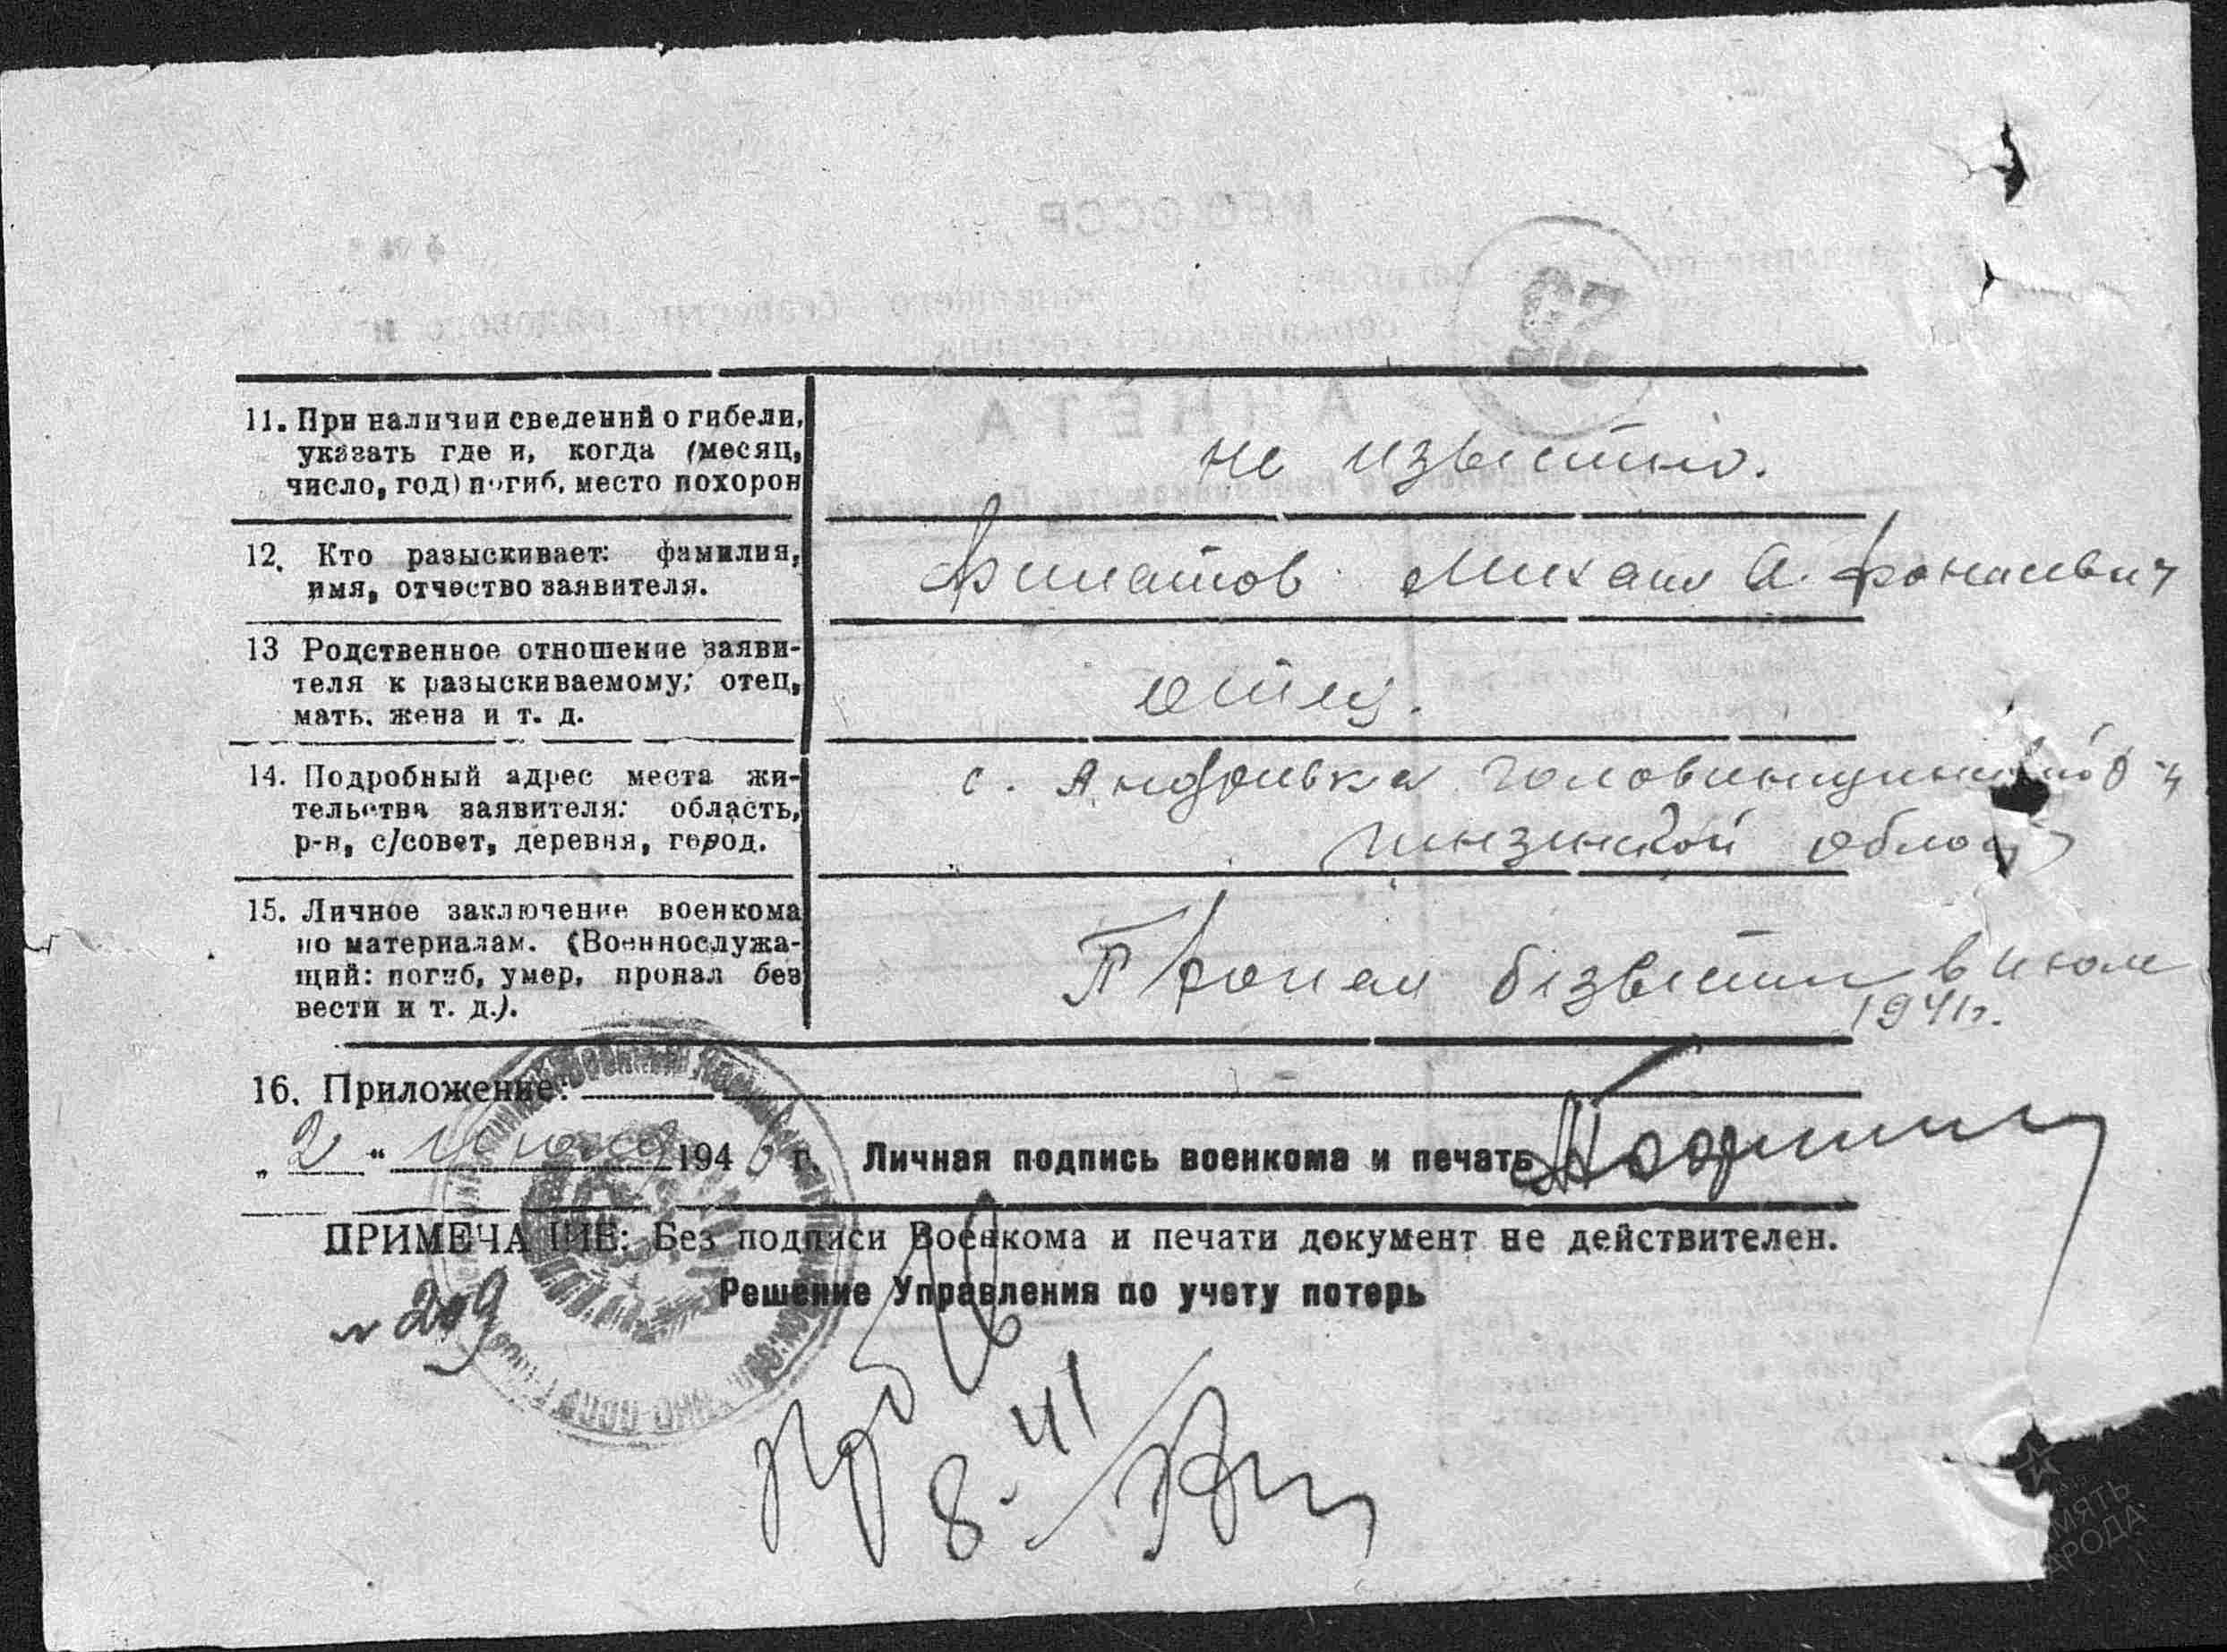 11. При наличии сведений о гибели,
указать где и, когда (месяц,
число, год) погиб, место похорон
не известно.
12. Кто разыскивает: фамилия,
имя, отчество заявителя.
Филатов Михаил Афонасьевич
13 Родственное отношение заяви-
теля к разыскиваемому; отец,
мать, жена и т. д.
отец.
14. Подробный адрес места жи-
тельства заявителя: область,
р-н, с/совет, деревня, город.
с. Андреевка
пензенской област
15. Личное заключение военкома
по материалам. (Военнослужа-
щий: погиб, умер, пропал без
вести и т. д.).
Пропал безвести в июле
1941г.
16. Приложение:
„2“ 1946 г. Личная подпись военкома и печать
ПРИМЕЧАНИЕ: Без подписи Военкома и печати документ не действителен.
Решение Управления по учету потерь
№ 209
8. 41
ПАМЯТЬ
НАРОДА